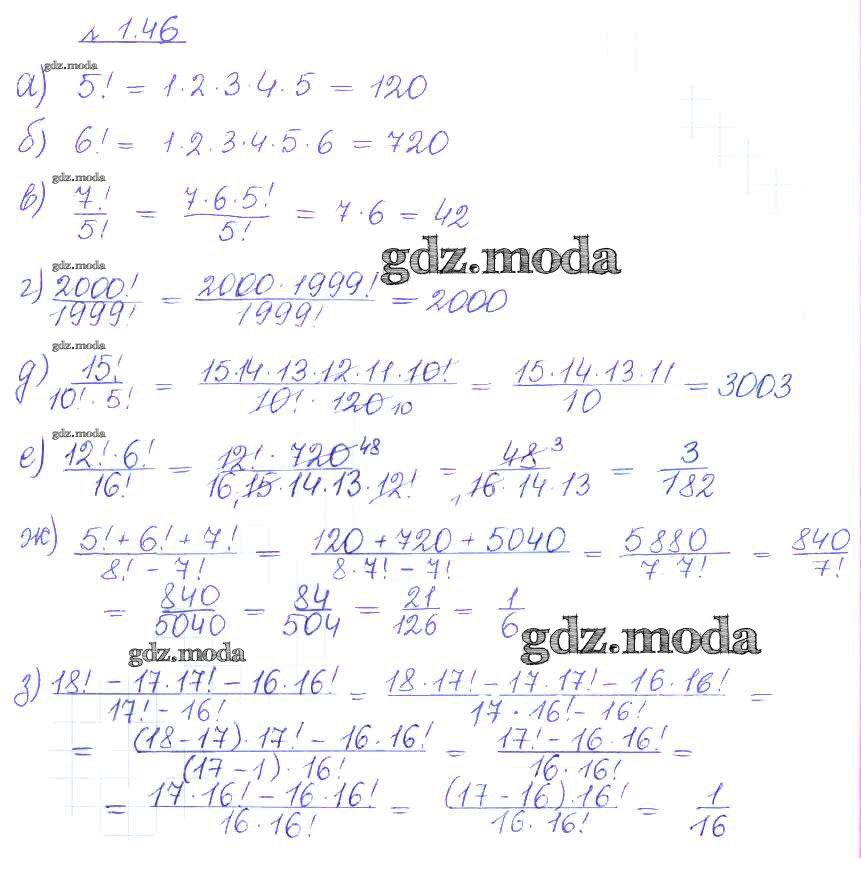 № 1.46
gdz.moda
а) 5! = 1·2·3·4·5 = 120
б) 6! = 1·2·3·4·5·6 = 720
gdz.moda
в) 7!/5! = 7·6·5!/5! = 7·6 = 42
gdz.moda
gdz.moda
г) 2000!/1999! = 2000·1999!/1999! = 2000
gdz.moda
д) 15!/10!·5! = 15·14·13·12·11·10!/10!·120 10 = 15·14·13·11/10 = 3003
gdz.moda
е) 12!·6!/16! = 12!·720 48/16·15·14·13·12! = 48 3/1 16·14·13 = 3/182
ж) 5!+6!+7!/8!-7! = 120+720+5040/8·7!-7! = 5880/7·7! = 840/7!
= 840/5040 = 84/504 = 21/126 = 1/6
gdz.moda
gdz.moda
з) 18!-17·17!-16·16!/17!-16! = 18·17!-17·17!-16·16!/17·16!-16! =
= (18-17)·17!-16·16!/(17-1)·16! = 17!-16·16!/16·16! =
= 17·16!-16·16!/16·16! = (17-16)·16!/16·16! = 1/16